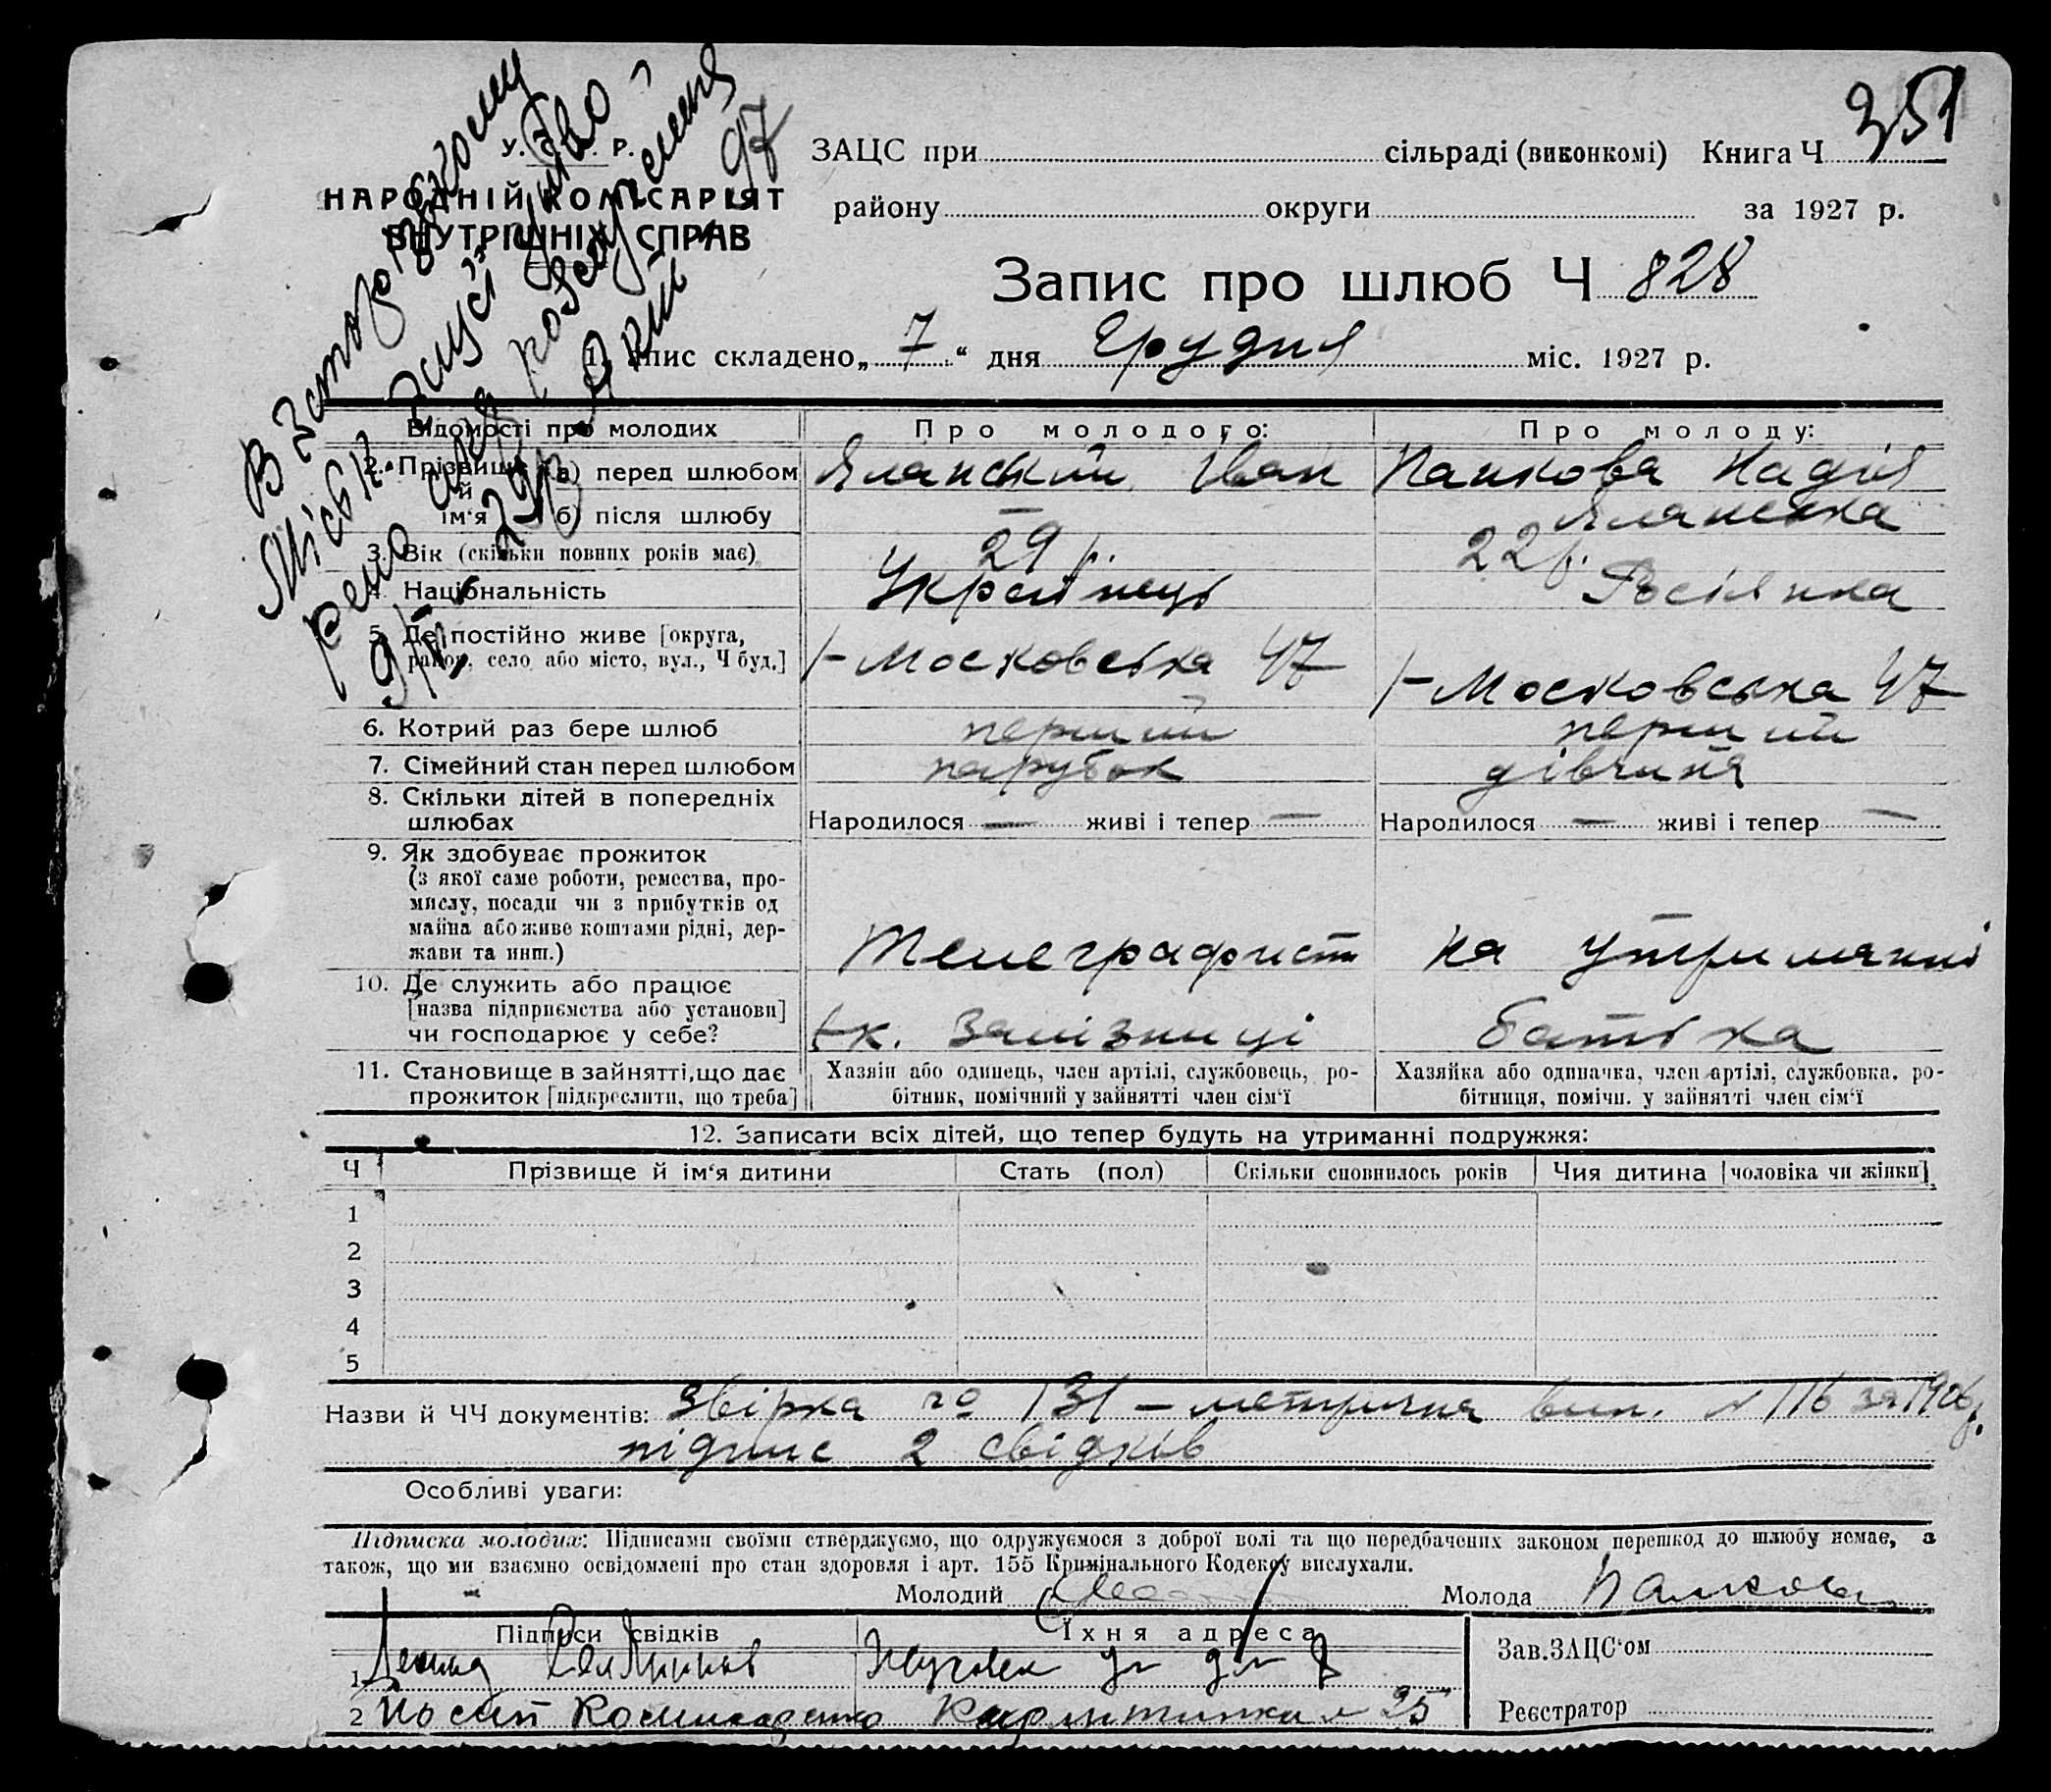 351
У. С. Р. Р.
НАРОДНІЙ КОМІСАРІЯТ
ВНУТРІШНІХ СПРАВ
ЗАЦС при сільраді (виконкомі) Книга Ч
району округи за 1927 р.
Запис про шлюб Ч 828
1. Запис складено „7“ дня Грудня міс. 1927 р.
В Запорізькому
Міськ. Загсі
9/IV 29 р.
97
Відомості про молодих Про молодого: Про молоду:
2. Прізвище й ім‘я а) перед шлюбом Яланський Іван Панкова Надія
б) після шлюбу — Яланська
3. Вік (скільки повних років має) 29 р. 22 р.
4. Національність Українець Росіянка
5. Де постійно живе [округа, район, село або місто, вул., Ч буд.] Московська 47 Московська 47
6. Котрий раз бере шлюб перший перший
7. Сімейний стан перед шлюбом парубок дівчина
8. Скільки дітей в попередніх
шлюбах Народилося — живі і тепер — Народилося — живі і тепер —
9. Як здобуває прожиток
(з якої саме роботи, ремества, про-
мислу, посади чи з прибутків од
майна або живе коштами рідні, дер-
жави та инш.) Телеграфист на утриманні
10. Де служить або працює
[назва підприємства або установи]
чи господарює у себе? залізниці батька
11. Становище в зайнятті, що дає Хазяін або одинець, член артілі, службовець, ро- Хазяйка або одиначка, член артілі, службовка, ро-
прожиток [підкреслити, що треба] бітник, помічний у зайнятті член сім‘ї бітниця, помічн. у зайнятті член сім‘ї
12. Записати всіх дітей, що тепер будуть на утриманні подружжя:
Ч Прізвище й ім‘я дитини Стать (пол) Скільки сповнилось років Чия дитина [чоловіка чи жінки]
1
2
3
4
5
Назви й ЧЧ документів: Звірка 131 — метрична вип. № 116 за 1906 р.
підпис 2 свідків
Особливі уваги:
Підписка молодих: Підписами своїми стверджуємо, що одружуємося з доброї волі та що передбачених законом перешкод до шлюбу немає, а
також, що ми взаємно освідомлені про стан здоровля і арт. 155 Кримінального Кодексу вислухали.
Молодий Молода Панкова
Підписи свідків Їхня адреса Зав. ЗАЦС‘ом
1
2 Йосип 25 Реєстратор